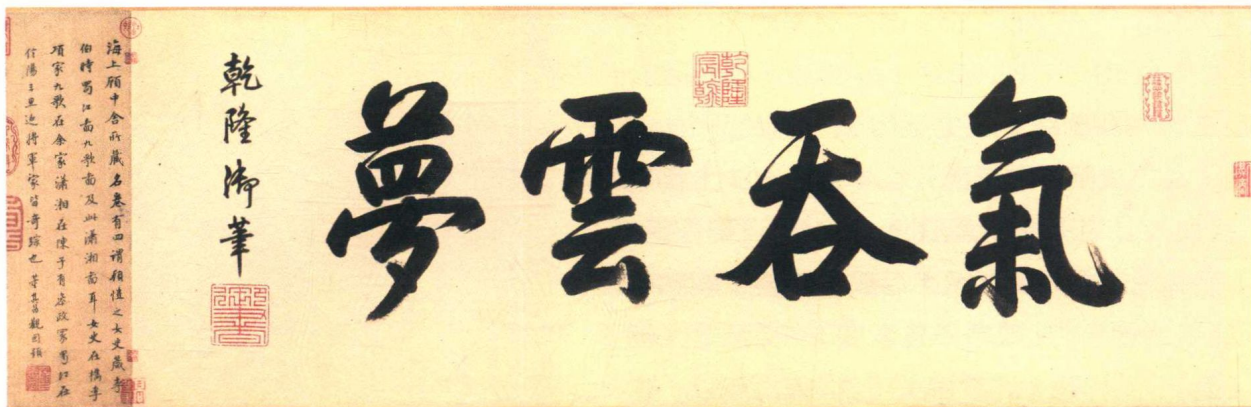 氣吞雲夢
乾隆宸翰
乾隆御筆
海上顧中舍所藏名卷有四謂顧愷之女史箴李
伯時蜀江啚九歌啚及此瀟湘啚耳女史在檇李
項家九歌在余家瀟湘在陳子有參政家蜀江在
信陽王思延將軍家皆奇踪也 董其昌觀因題